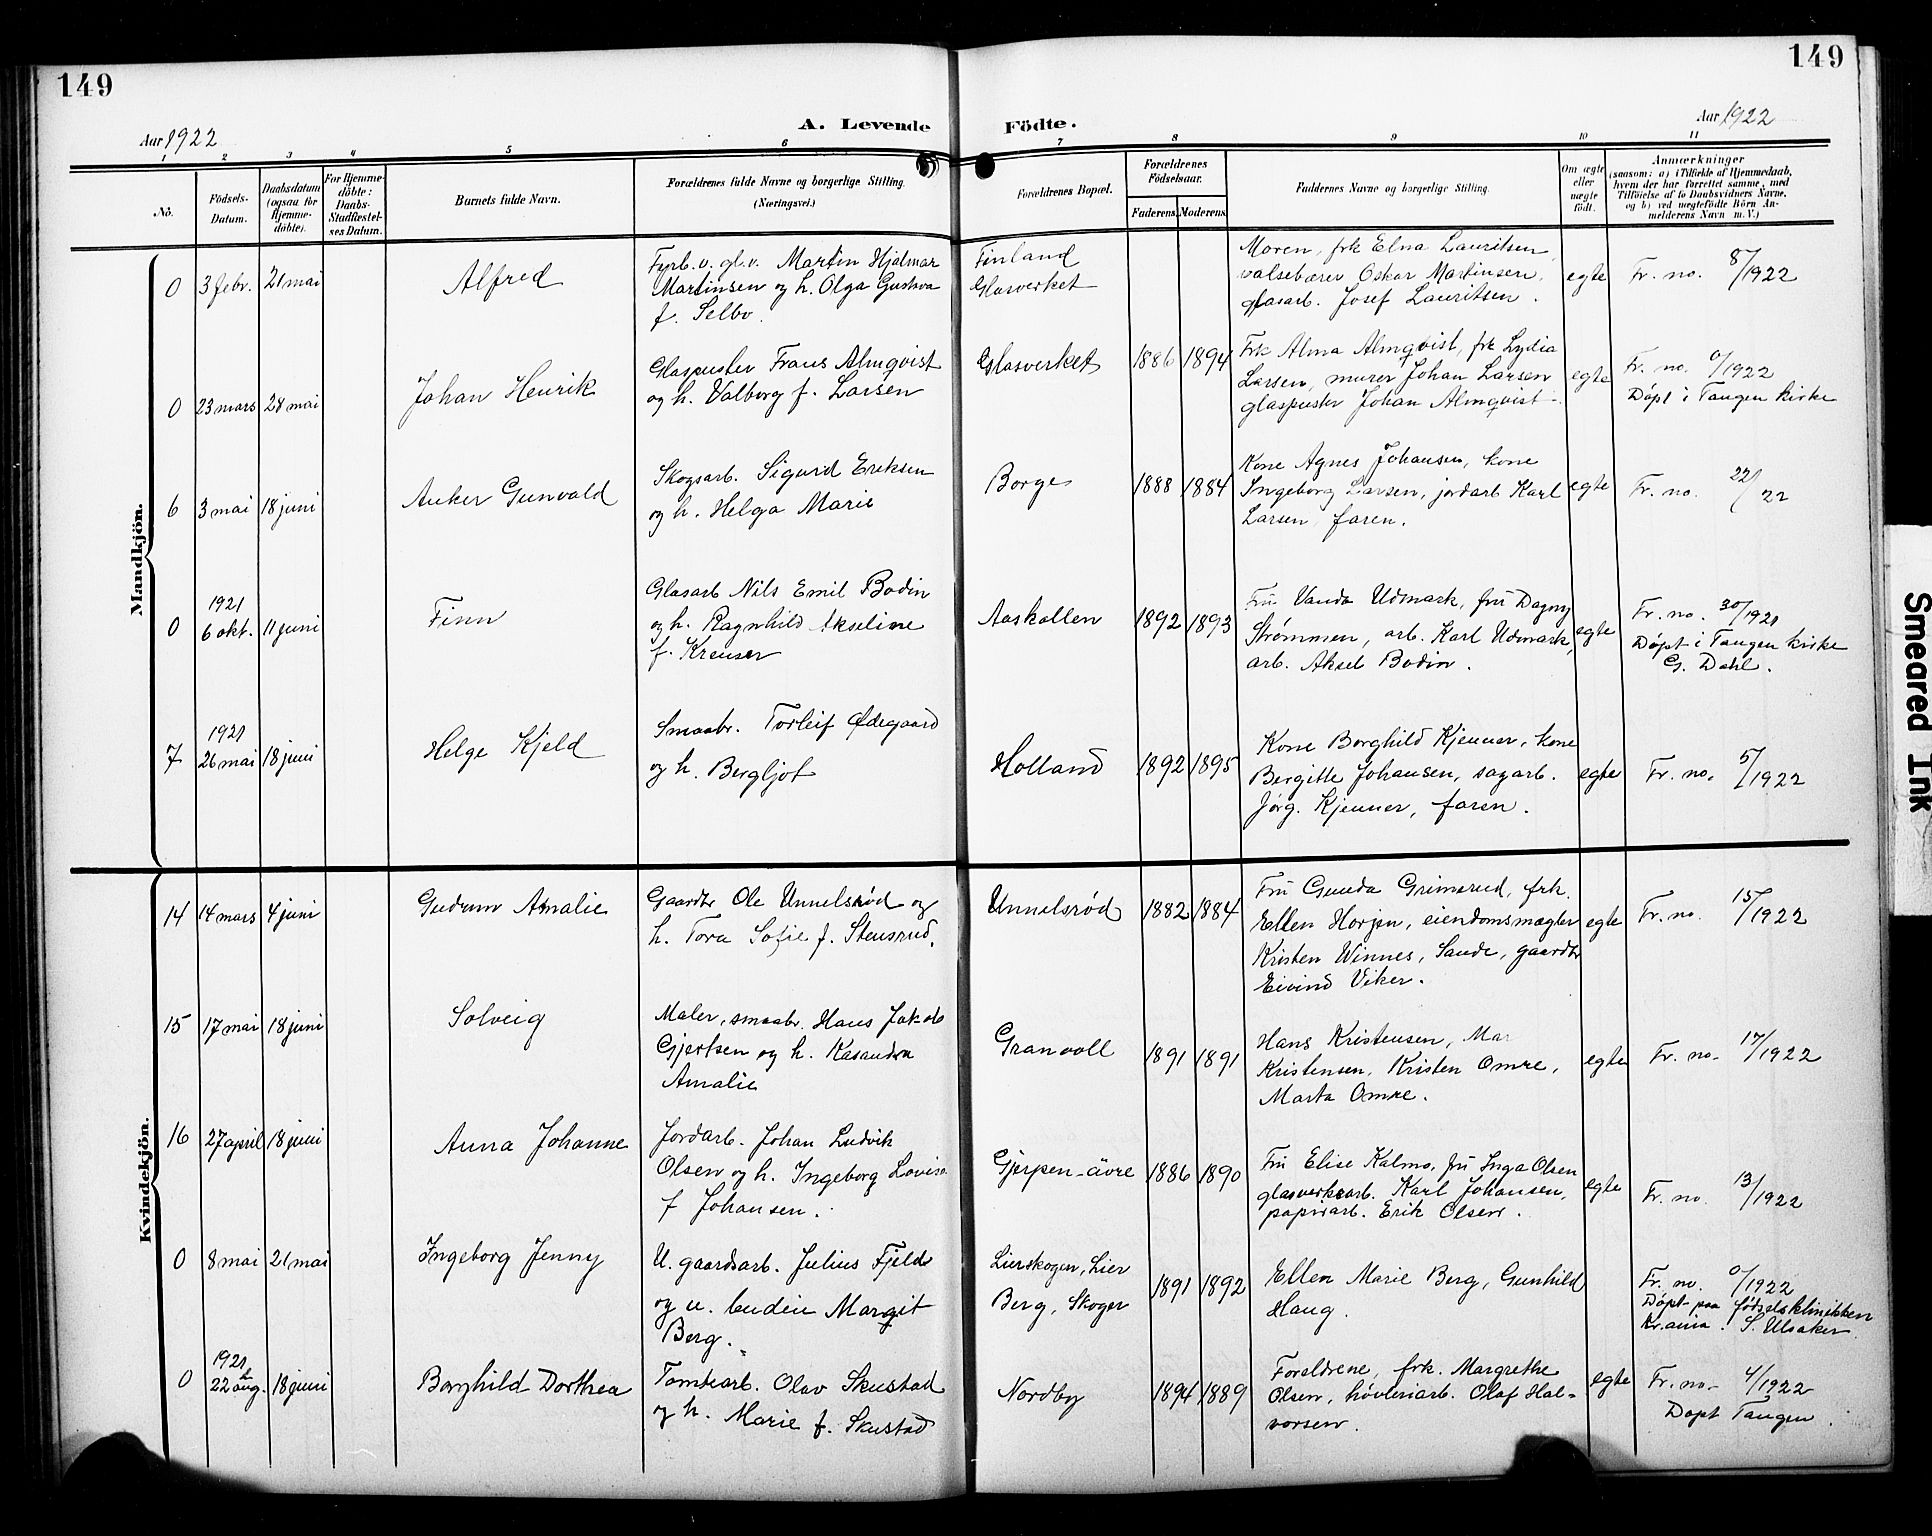 149
149
Aar 1922
A. Levende
Födte.
Aar 1922
1 2 3 4 5 6 7 8 9 10 11
No.
Födsels-
Datum.
Daabsdatum
(ogsaa for
Hjemme-
döbte).
For Hjemme-
döbte:
Daabs-
Stadfæstel-
ses Datum.
Barnets fulde Navn.
Forældrenes fulde Navne og borgerlige Stilling.
(Næringsvei.)
Forældrenes Bopæl.
Forældrenes
Födselsaar.
Faderens.
Moderens.
Faddernes Navne og borgerlige Stilling.
Om ægte
eller
uægte
født.
Anmærkninger
(saasom: a) i Tilfælde af Hjemmedaab,
hvem der har forrettet samme, med
Tilföielse af to Daabsvidners Navne,
og b) ved uægtefödte Börn An-
melderens Navn m. V.)
Mandkjön.
0 3 febr. 21 mai
Alfred
Fyrb. v. gl.v. Martin Hjalmar
Martinsen og h. Olga Gustava
f. Selbo.
Finland
Glasverket
Moren, frk Elna Lauritsen,
valsebærer Oskar Martinsen,
glasarb. Josef Lauritsen.
egte
Fr. no. 8/1922
0 23 mars 28 mai
Johan Henrik
Glaspuster Frans Almqvist
og h. Valborg f. Larsen
Glasverket
1886 1894
Frk Alma Almqvist, frk Lydia
Larsen, murer Johan Larsen
glaspuster Johan Almqvist.
egte
Fr. no. 0/1922
Döpt i Tangen kirke
6 3 mai 18 juni
Anker Gunvald
Skogsarb. Sigurd Eriksen
og h. Helga Marie
Borge
1888 1884
Kone Agnes Johansen, kone
Ingeborg Larsen, jordarb Karl
Larsen, faren.
egte
Fr. no. 22/22
0 1921
6 okt. 11 juni
Finn
Glasarb Nils Emil Bodin
og h. Ragnhild Akseline
f. Kreuser
Aaskollen
1892 1893
Fru Vanda Udmark, fru Dagny
Strømmen, arb. Karl Udmark,
arb. Aksel Bodin.
egte
Fr. no. 30/1921
Döpt i Tangen kirke
G. Dahl.
7 1921
26 mai 18 juni
Helge Kjeld
Smaabr. Torleif Ødegaard
og h. Bergljot
Holland
1892 1895
Kone Borghild Kjenner, kone
Bergitte Johansen, sagarb.
Jörg. Kjenner, faren.
egte
Fr. no. 5/1922
Kvindekjön.
14 14 mars 4 juni
Gudrun Amalie
Gaardbr Ole Unnelsrød og
h. Tora Sofie f. Stensrud.
Unnelsrød
1882 1884
Fru Gunda Grimsrud, frk.
Ellen Horjen, eiendomsmægler
Kristen Winnes, Sande, gaardbr
Eivind Viker.
egte
Fr. no. 15/1922
15 17 mai 18 juni
Solveig
Maler, smaabr. Hans Jakob
Gjertsen og h. Kasandra
Amalie
Granvoll
1891 1891
Hans Kristensen, Mar
Kristensen, Kristen Omre,
Marta Omre.
egte
Fr. no. 17/1922
16 27 april 18 juni
Anna Johanne
Jordarb. Johan Ludvik
Olsen og h. Ingeborg Lovisa
f Johansen.
Gjerpen-övre
1886 1890
Fru Elise Kalmo, fru Inga Olsen
glasverksarb. Karl Johansen,
papirarb. Erik Olsen.
egte
Fr. no. 13/1922
0 8 mai 21 mai
Ingeborg Jenny
U. gaardsarb. Julius Fjeld
og u. budeie Margit
Berg.
Lierskogen, Lier
Berg, Skoger
1891 1892
Ellen Marie Berg, Gunhild
Haug.
Fr. no. 0/1922
Döpt paa födselsklinikken
Kr.ania. S. Ulsaker.
0 1921
22 aug. 18 juni
Borghild Dorthea
Tomtearb. Olav Skustad
og h. Marie f. Skustad
Nordby
1894 1889
Foreldrene, frk. Margrethe
Olsen, høvleriarb. Olaf Hal-
vorsen.
egte
Fr. no. 4/1922
Döpt Tangen.
Smeared Ink